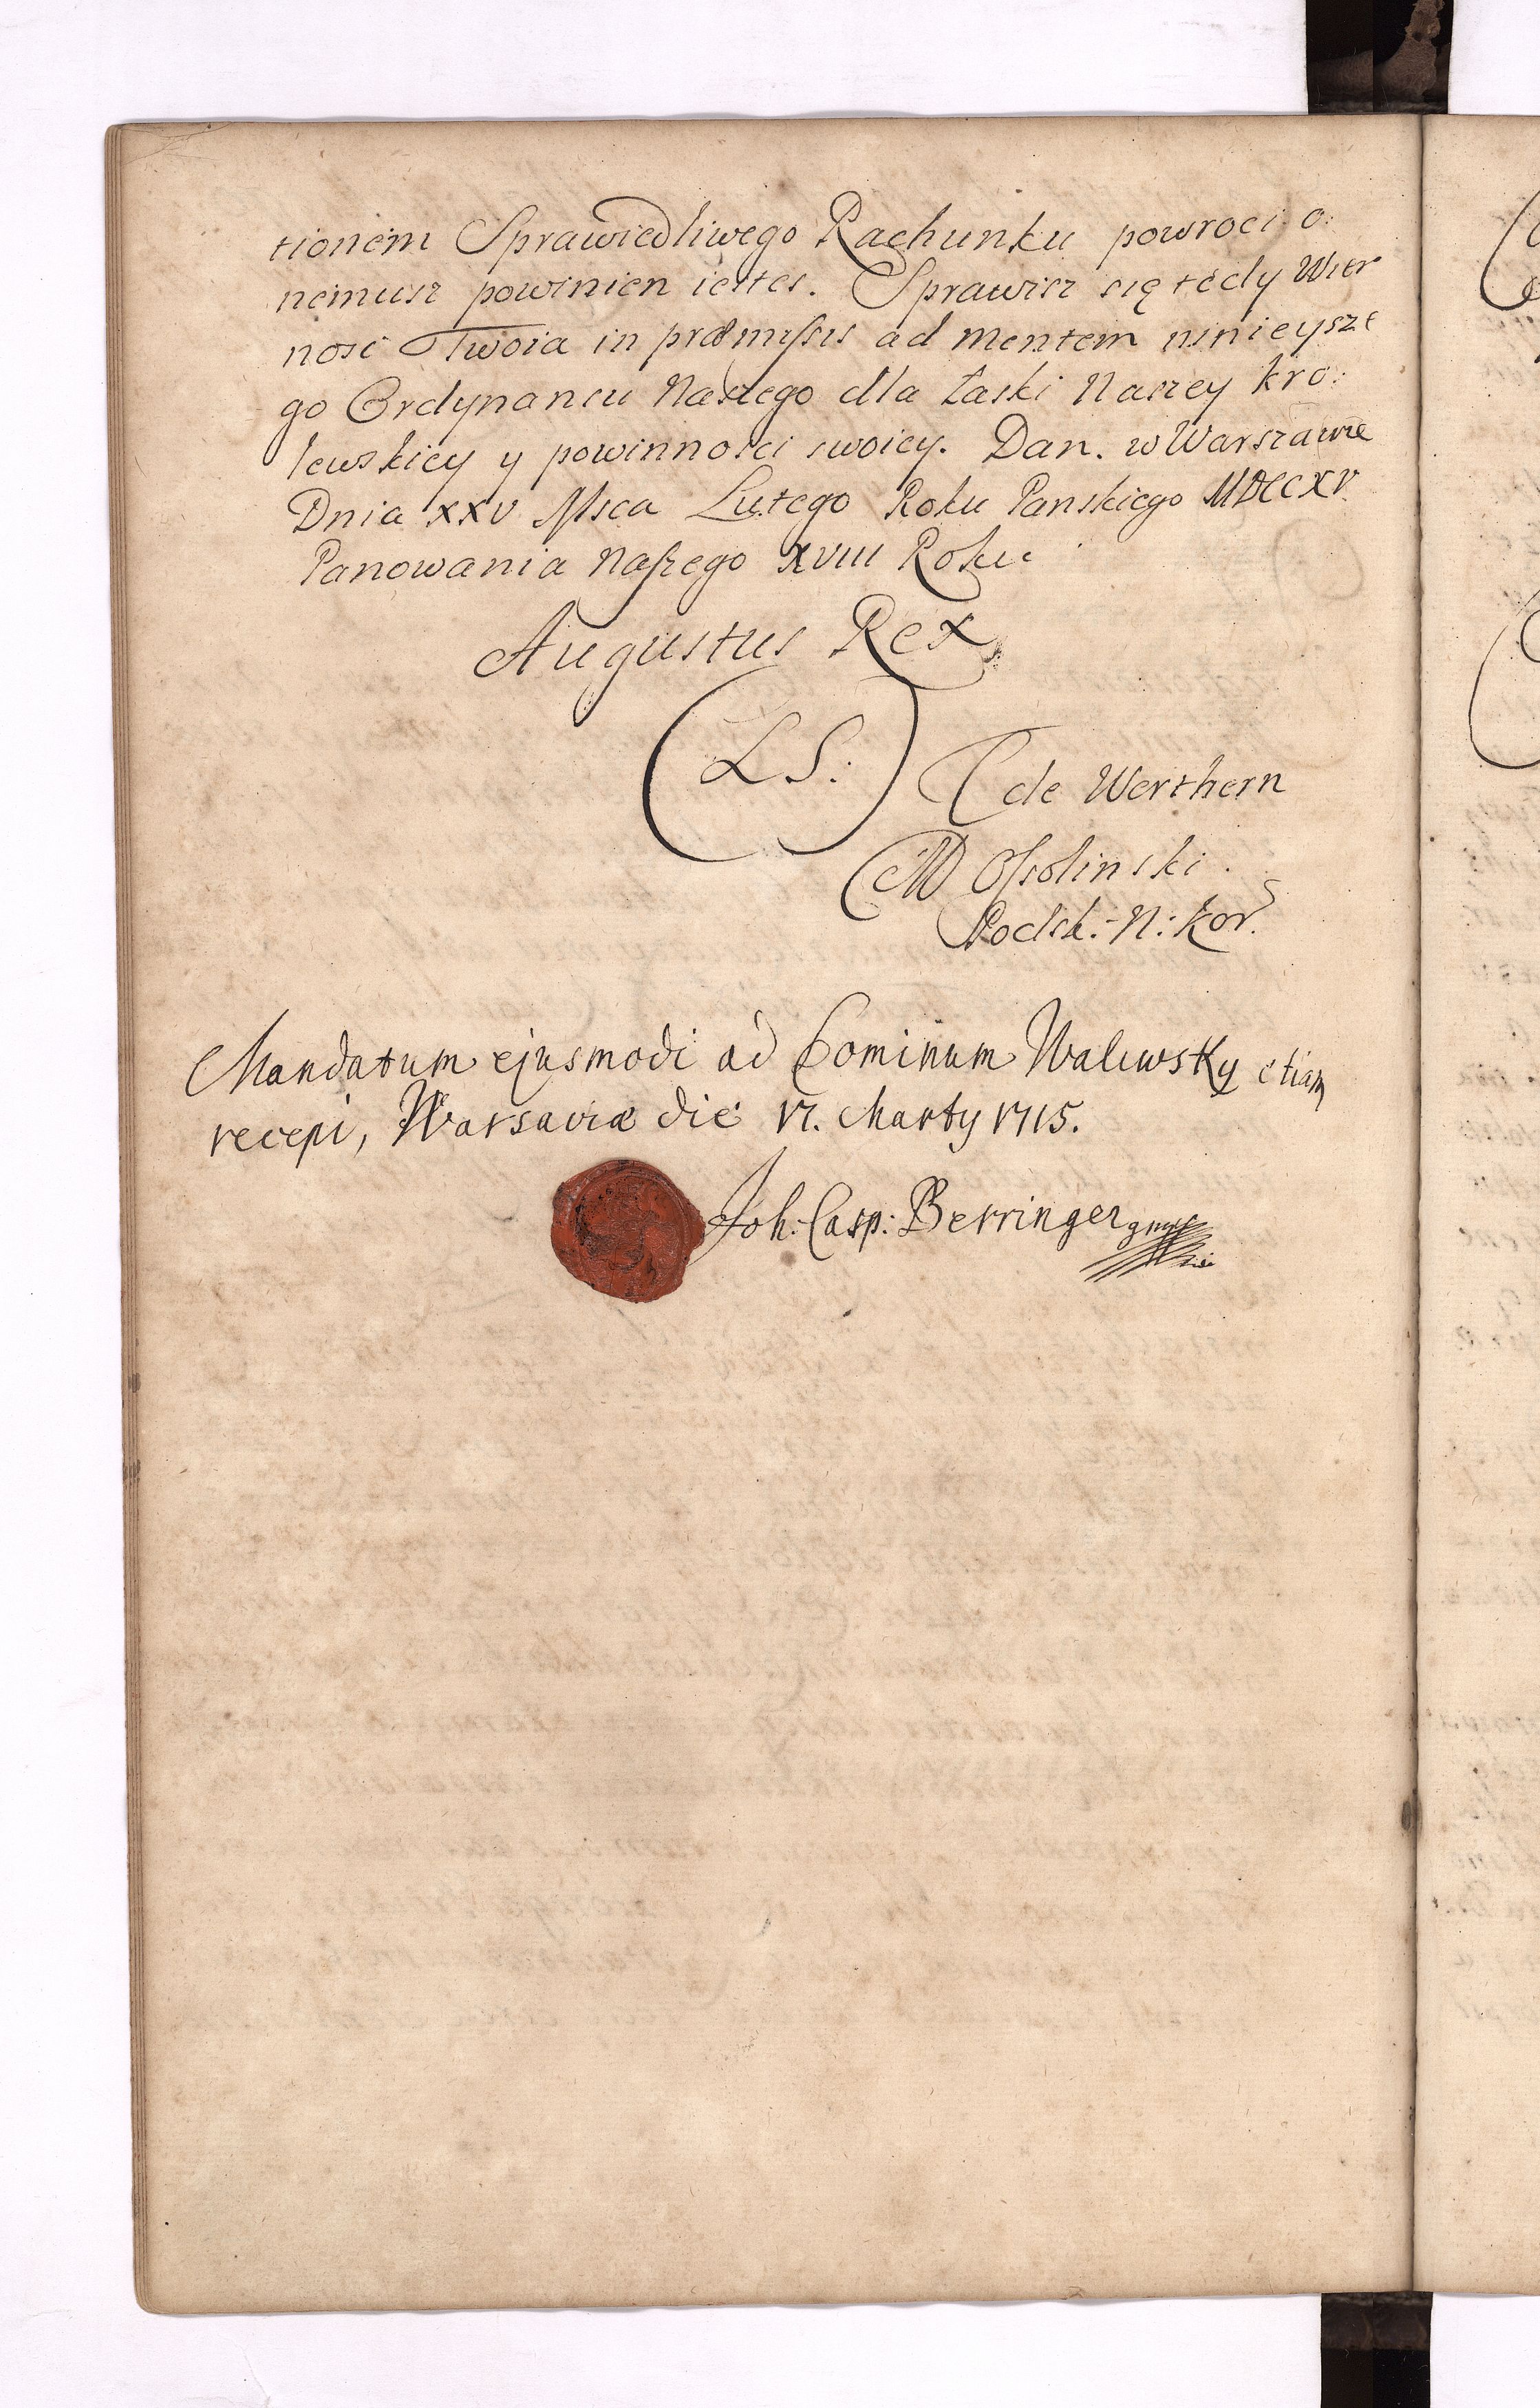 tionem Sprawiedliwego Rachunku powroci o:
nemusz powinien iestes. Sprawisz się tedy Wier
nosć Twoia in præmissis ad mentem ninieysze
go Ordynansu Naszego dla Łaski Naszey Kro:
lewskiey y powinnosci swoiey. Dan. w Warszawie
Dnia XXV Msca Lutego Roku Panskiego MDCCXV
Panowania Naszego XVIII Roku
Augustus Rex
LS:
de Werthern
M Ossolinski.
Podsk: N: Kor.
Mandatum ejusmodi ad Dominum Walewsky etiam
recepi, Warsaviæ die 17. Marty 1715.
Joh: Casp: Berringer